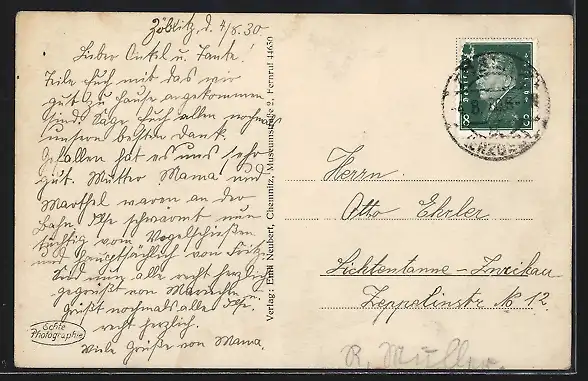 Zöblitz, d. 4/8. 30.
Lieber Onkel u. Tante!
Teile Euch mit das wir
gut zu Hause angekommen
sind. Sage Euch allen nochmals
unsern besten Dank.
Gefallen hat es uns sehr
gut. Mutter Mama und
Marthel waren an der
Bahn. Ihr schwärmt nun
tüchtig vom Vogelschießen
und hauptsächlich von Fritz.
Seid nun alle recht herzlich
gegrüßt von Mariechen
Grüßt nochmals alle
recht herzlich.
Viele Grüße von Mama.
Echte
Photographie
Verlag: Emil Neubert, Chemnitz, Museumstraße 2, Fernruf 44650
8
8
Herrn
Otto Ehrler
Lichtentanne-Zwickau
Zeppelinstr No 12.
R. Müller.